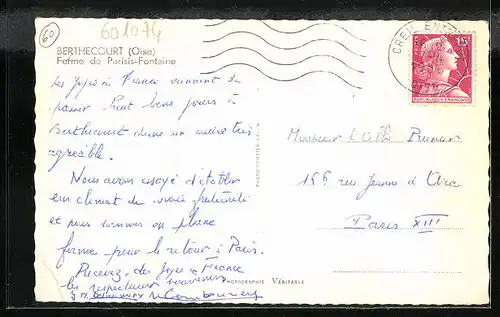 60
601074
BERTHECOURT (Oise)
Ferme de Parisis-Fontaine
Les Joyes de France viennent de
passer huit bons jours à
Berthecourt dans un cadre très
agréable.
Nous avons essayé d'établir
un climat de vraie fraternité
et nous sommes en pleine
forme pour le retour à Paris.
Recevez, des Joyes de France
les respectueux souvenirs
CREIL
15
RÉPUBLIQUE FRANÇAISE
Monsieur
156 rue Jeanne d'Arc
Paris XIII
PHOTOGRAPHIE VÉRITABLE